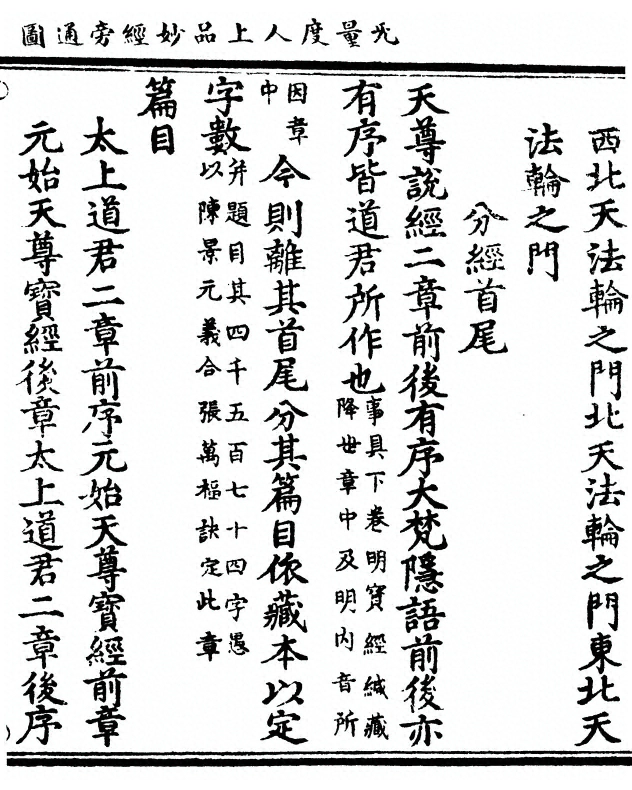 无量度人上品妙經旁通圖
西北天法輪之門北天法輪之門東北天
法輪之門
分經首尾
天尊說經二章前後有序大梵隱語前後亦
有序皆道君所作也事具下卷明寶經緘藏
降世章中及明內音所
因章
中
今則離其首尾分其篇目依藏本以定
字數并題目其四千五百七十四字愚
以陳景元義合張萬福訣定此章
篇目
太上道君二章前序元始天尊寶經前章
元始天尊寶經後章太上道君二章後序